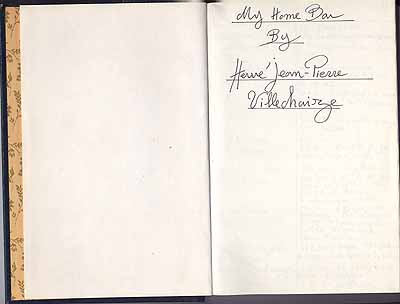 My Home Bar
By
Hervé Jean-Pierre
Villechaize